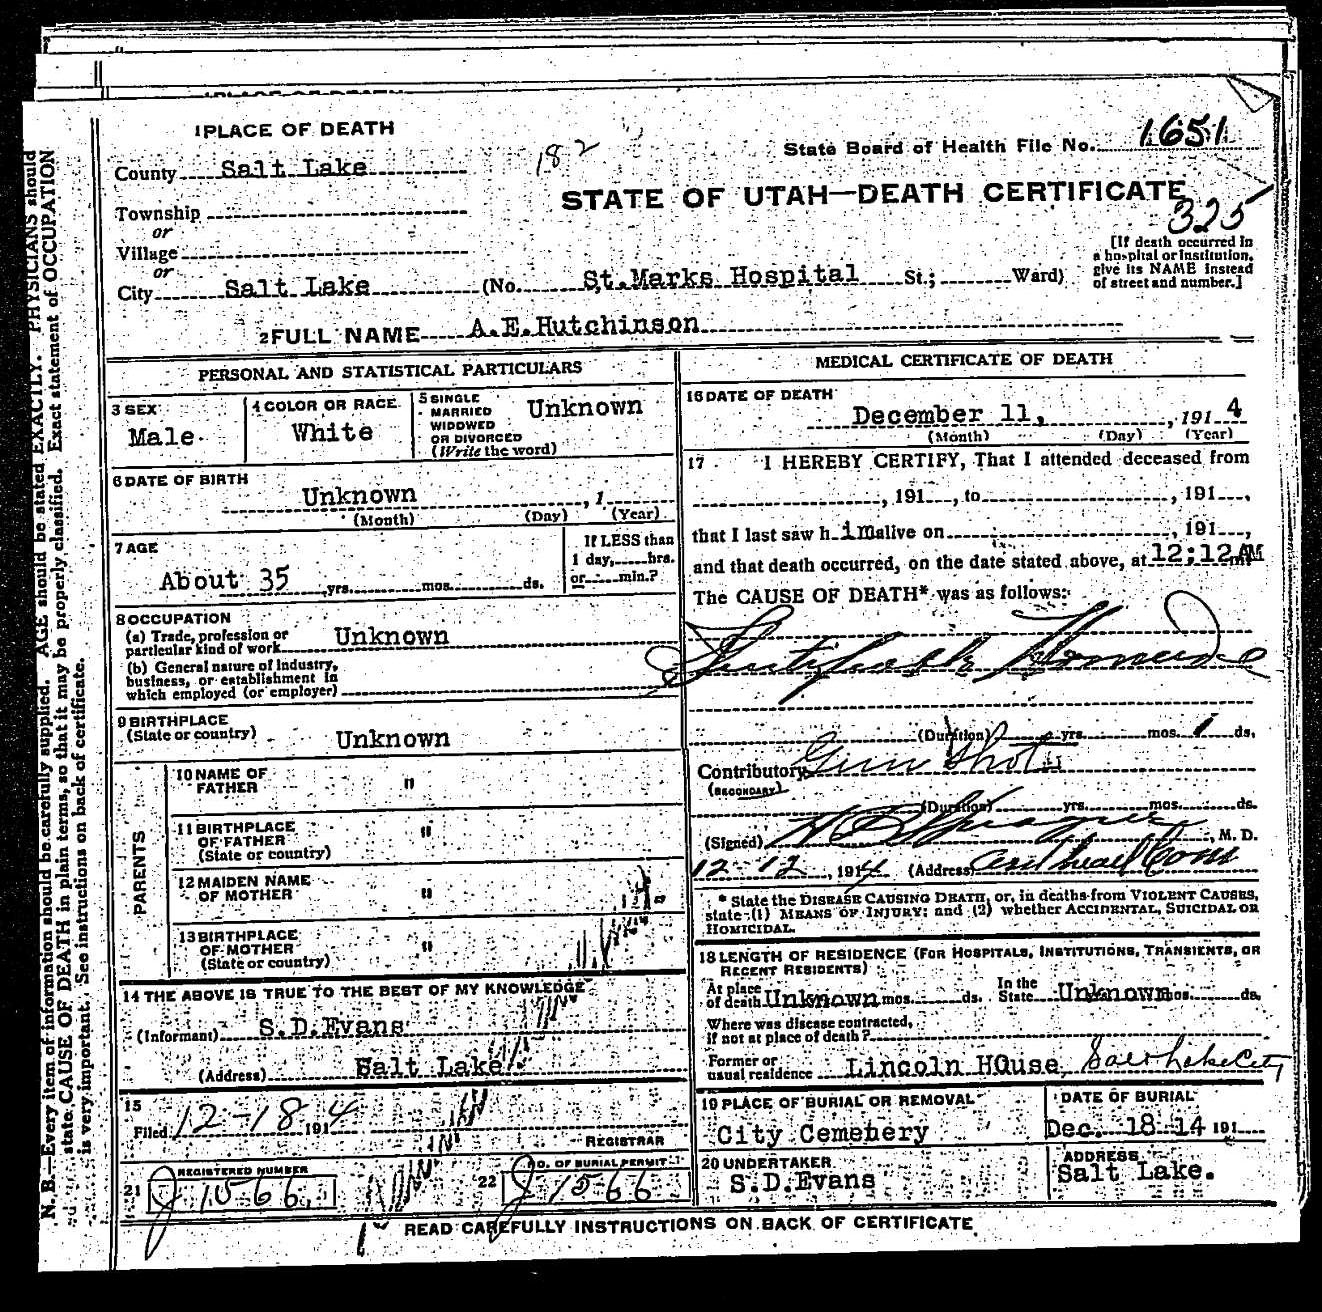 1 PLACE OF DEATH
County Salt Lake
182
State Board of Health File No. 1651
STATE OF UTAH—DEATH CERTIFICATE
325
Township
or
Village
or
City Salt Lake (No. St.Marks Hospital St.; Ward)
[If death occurred in
a hospital or institution,
give its NAME instead
of street and number.]
2 FULL NAME A.E.Hutchinson
PERSONAL AND STATISTICAL PARTICULARS
3 SEX
Male
4 COLOR OR RACE
White
5 SINGLE
MARRIED
WIDOWED
OR DIVORCED
(Write the word)
Unknown
6 DATE OF BIRTH
Unknown , 1
(Month) (Day) (Year)
7 AGE
About 35 yrs. mos. ds.
If LESS than
1 day, hrs.
or min.?
8 OCCUPATION
(a) Trade, profession or
particular kind of work Unknown
(b) General nature of industry,
business, or establishment in
which employed (or employer)
9 BIRTHPLACE
(State or country) Unknown
PARENTS
10 NAME OF
FATHER "
11 BIRTHPLACE
OF FATHER
(State or country) "
12 MAIDEN NAME
OF MOTHER "
13 BIRTHPLACE
OF MOTHER
(State or country) "
14 THE ABOVE IS TRUE TO THE BEST OF MY KNOWLEDGE
(Informant) S.D.Evans
(Address) Salt Lake
15
Filed 12-18 1914
REGISTRAR
21 REGISTERED NUMBER
J 1566
22 NO. OF BURIAL PERMIT
J 1566
MEDICAL CERTIFICATE OF DEATH
16 DATE OF DEATH
December 11, , 1914
(Month) (Day) (Year)
17 I HEREBY CERTIFY, That I attended deceased from
, 191 , to , 191 ,
that I last saw h im alive on , 191 ,
and that death occurred, on the date stated above, at 12:12 AM m.
The CAUSE OF DEATH* was as follows:
Justifiable Homicide
(Duration) yrs. mos. 1 ds.
Contributory Gun Shot
(SECONDARY)
(Duration) yrs. mos. ds.
(Signed) , M. D.
12-12, 1914 (Address)
* State the DISEASE CAUSING DEATH, or, in deaths from VIOLENT CAUSES,
state (1) MEANS OF INJURY; and (2) whether ACCIDENTAL, SUICIDAL OR
HOMICIDAL.
18 LENGTH OF RESIDENCE (FOR HOSPITALS, INSTITUTIONS, TRANSIENTS, OR
RECENT RESIDENTS)
At place
of death Unknown mos. ds. In the
State Unknown mos. ds.
Where was disease contracted,
if not at place of death?
Former or
usual residence Lincoln HOuse, Salt Lake City
19 PLACE OF BURIAL OR REMOVAL
City Cemetery
DATE OF BURIAL
Dec. 18 14 191
20 UNDERTAKER
S.D.Evans
ADDRESS
Salt Lake.
READ CAREFULLY INSTRUCTIONS ON BACK OF CERTIFICATE.
N. B.—Every item of information should be carefully supplied. AGE should be stated EXACTLY. PHYSICIANS should
state CAUSE OF DEATH in plain terms, so that it may be properly classified. Exact statement of OCCUPATION
is very important. See instructions on back of certificate.